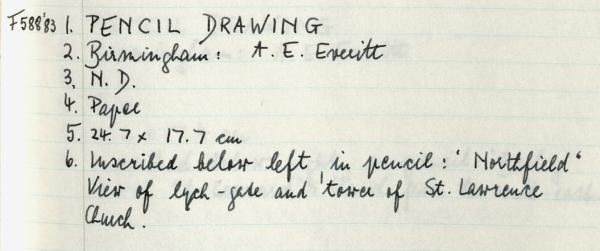 F588'83 1. PENCIL DRAWING
2. Birmingham: A. E. Everitt
3. N. D.
4. Paper
5. 24.7 x 17.7 cm
6. Inscribed below left, in pencil: 'Northfield'
View of lych-gate and tower of St. Lawrence
Church.